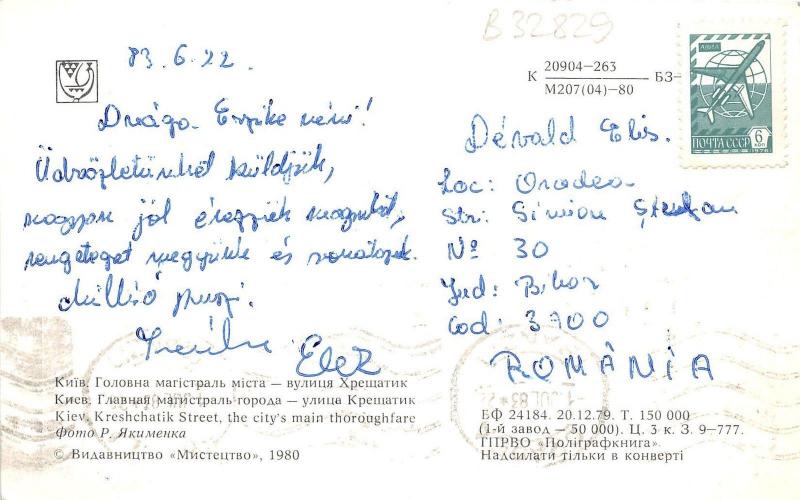 B 32829
83.6.22.
Drága Erzike néni!
Üdvözletünket küldjük,
nagyon jól érezzük magunkat,
rengeteget megyünk és
Millió puszi.
К 20904–263 БЗ–
М207(04)–80
АВИА
ПОЧТА СССР 6 коп
1976
Dévald Elis.
Loc: Oradea
Str: Simion Ștefan
Nº 30
Jud: Bihor
Cod: 3700
ROMÂNIA
Київ. Головна магістраль міста — вулиця Хрещатик
Киев. Главная магистраль города — улица Крещатик
Kiev. Kreshchatik Street, the city's main thoroughfare
Фото Р. Якименка
© Видавництво «Мистецтво», 1980
БФ 24184. 20.12.79. Т. 150 000
(1-й завод — 50 000). Ц. 3 к. З. 9–777.
ГПРВО «Поліграфкнига».
Надсилати тільки в конверті